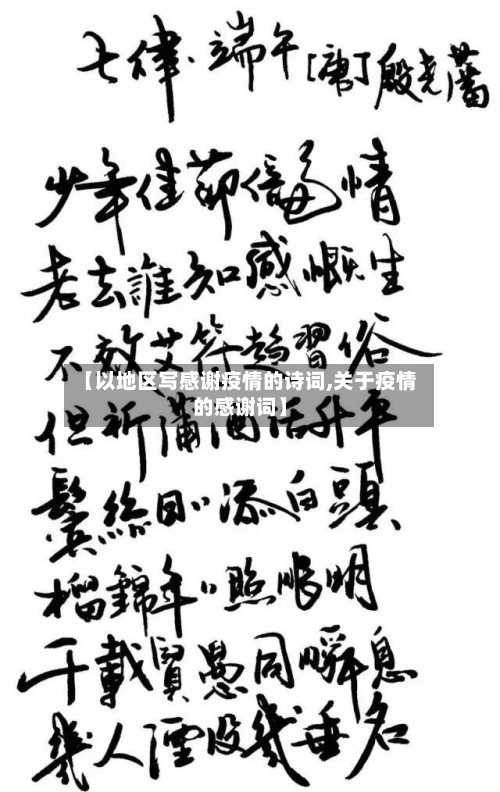 七律·端午[唐]殷尧藩
少年佳節倍多情
老去誰知感慨生
不效艾符趨習俗
但祈蒲酒话升平
【以地区写感谢疫情的诗词,关于疫情
的感谢词】
鬓絲日日添白頭
榴錦年年照眼明
千載賢愚同瞬息
幾人湮没幾垂名